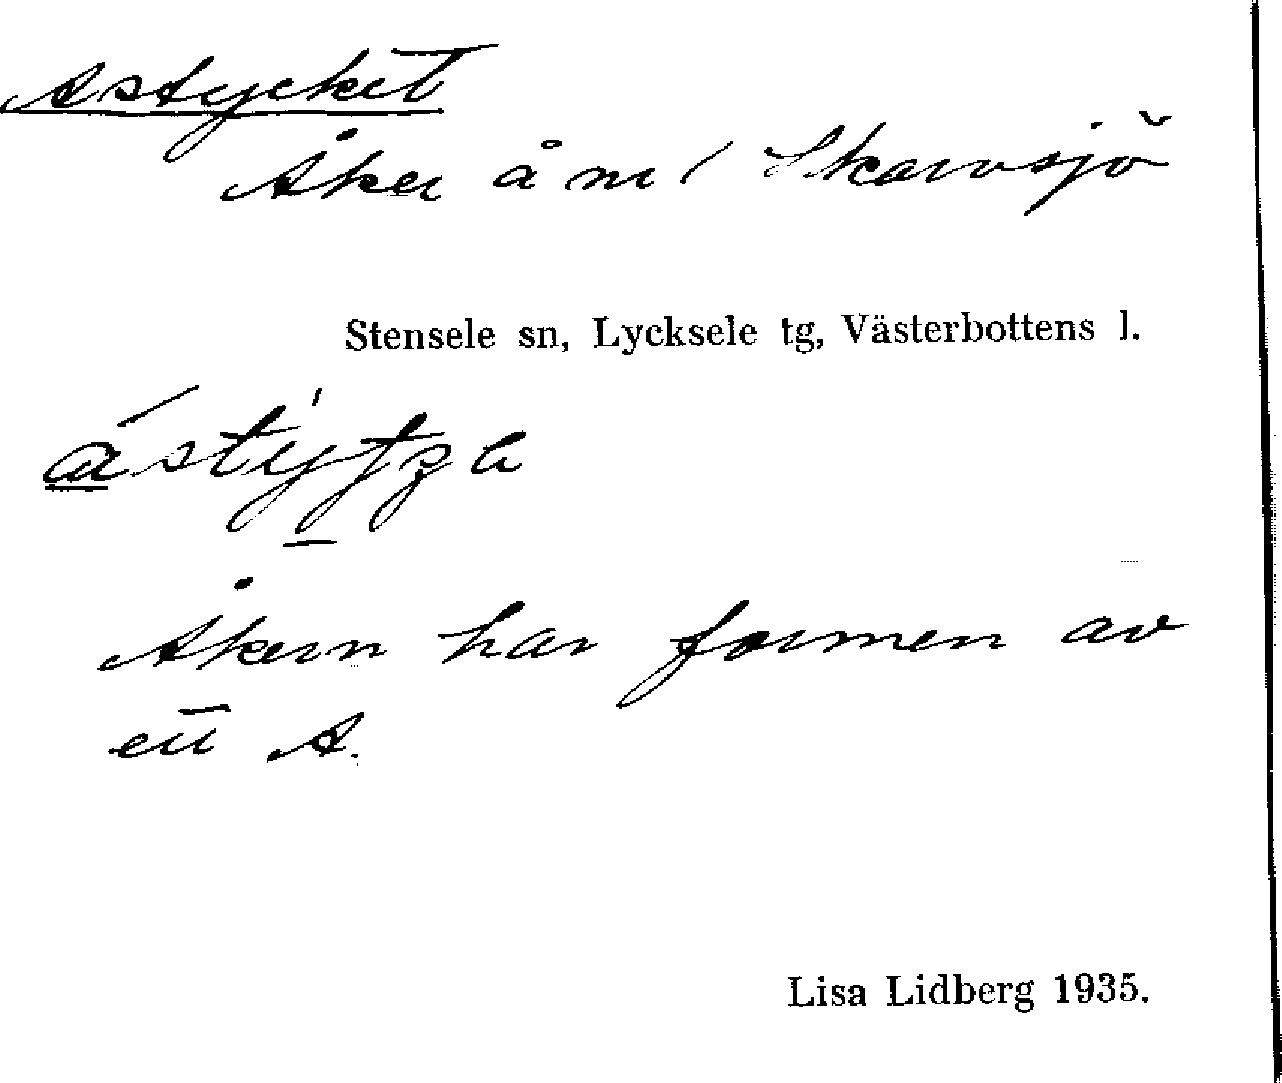 Astycket
Åker å m / Skarvsjö
Stensele sn, Lycksele tg, Västerbottens l.
Åkern har formen av
ett A.
Lisa Lidberg 1935.